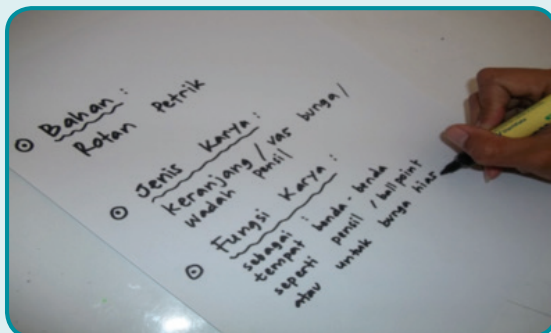 Bahan :
Rotan Petrik
Jenis Karya :
Keranjang / vas bunga /
wadah pensil
Fungsi Karya :
sebagai :
tempat benda-benda
seperti pensil / ballpoint
atau untuk bunga hias